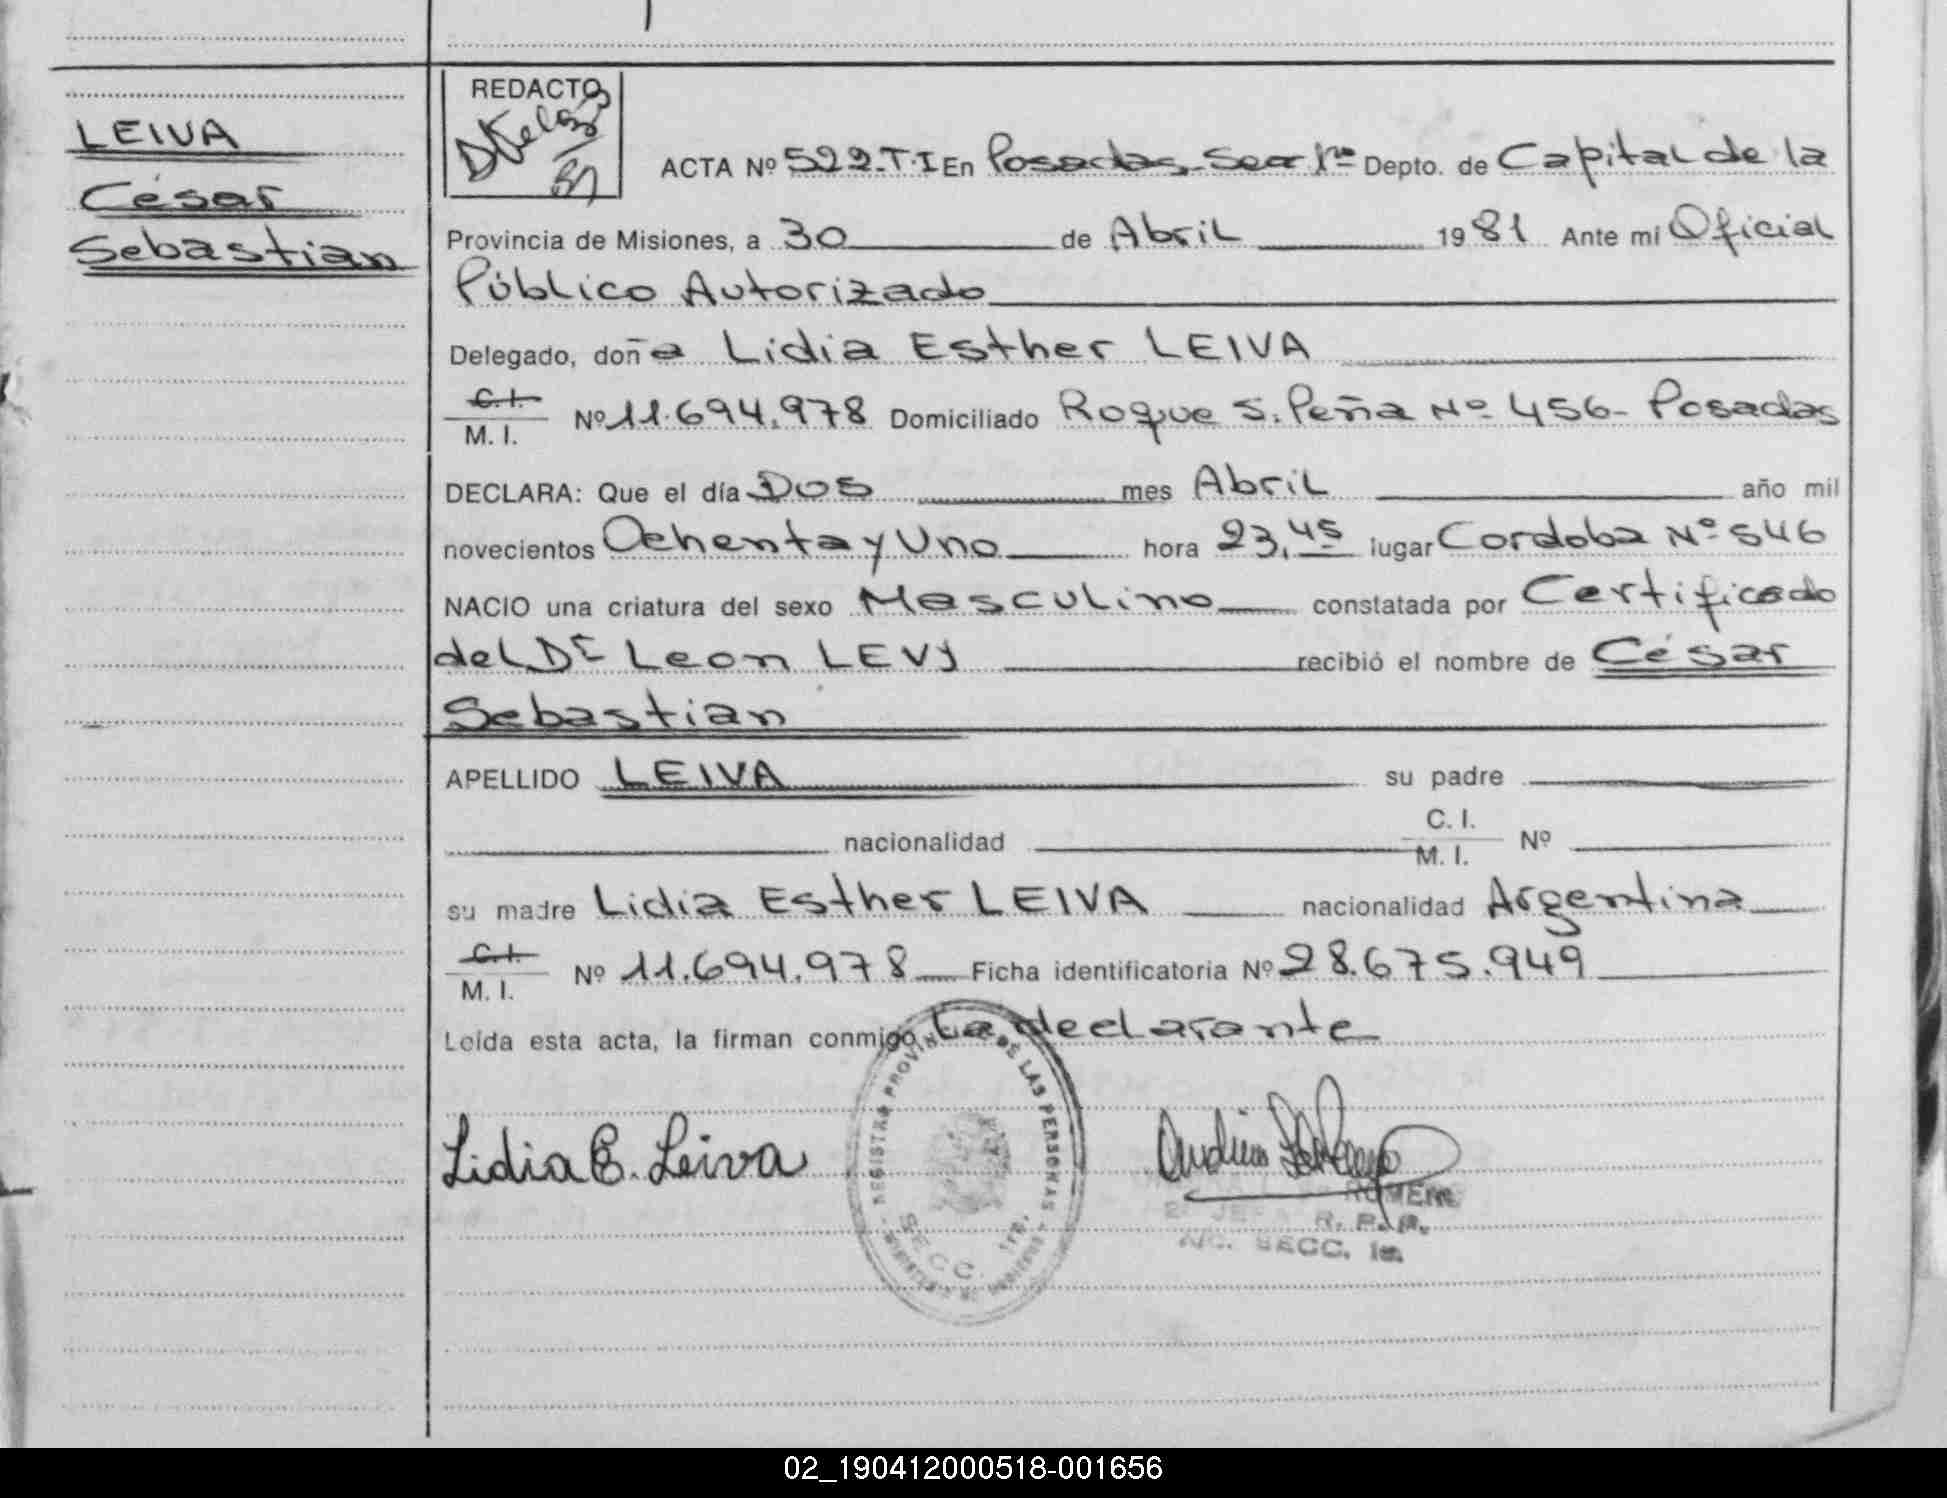 LEIVA
César
Sebastian
REDACTO
ACTA Nº 522.T.I En Posadas, Secc 1ra Depto. de Capital de la
Provincia de Misiones, a 30 de Abril 1981 Ante mi Oficial
Público Autorizado
Delegado, doña Lidia Esther LEIVA
C.I.
M. I. Nº 11.694.978 Domiciliado Roque S. Peña Nº 456- Posadas
DECLARA: Que el día Dos mes Abril año mil
novecientos Ochenta y Uno hora 23,45 lugar Cordoba Nº 546
NACIO una criatura del sexo Masculino constatada por Certificado
del Dr Leon LEVY recibió el nombre de César
Sebastian
APELLIDO LEIVA su padre
nacionalidad C. I.
M. I. Nº
su madre Lidia Esther LEIVA nacionalidad Argentina
C.I.
M. I. Nº 11.694.978 Ficha identificatoria Nº 28.675.949
Leida esta acta, la firman conmigo La declarante
Lidia E. Leiva
REGISTRO PROVIN DE LAS PERSONAS
SECC. 1ra.
ROMERO
2º JEFA R. P. P.
A/C. SECC. 1a.
02_190412000518-001656